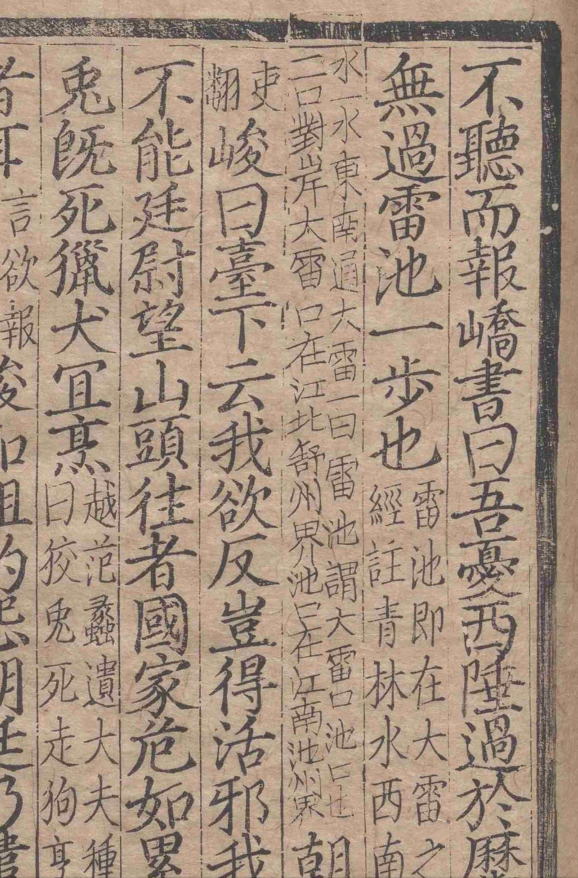 不聽而報嶠書曰吾憂西陲過於歷
無過雷池一步也
雷池即在大雷之
經註青林水西南
水一水東南通大雷一曰雷池謂大雷口池口也
二口對岸大雷口在江北舒州界池口在江南池州界
朝
吏
翻
峻曰臺下云我欲反豈得活邪我
不能廷尉望山頭往者國家危如累
兎旣死獵犬冝烹
越范蠡遺大夫種
曰狡兎死走狗烹
者耳
言欲報
峻